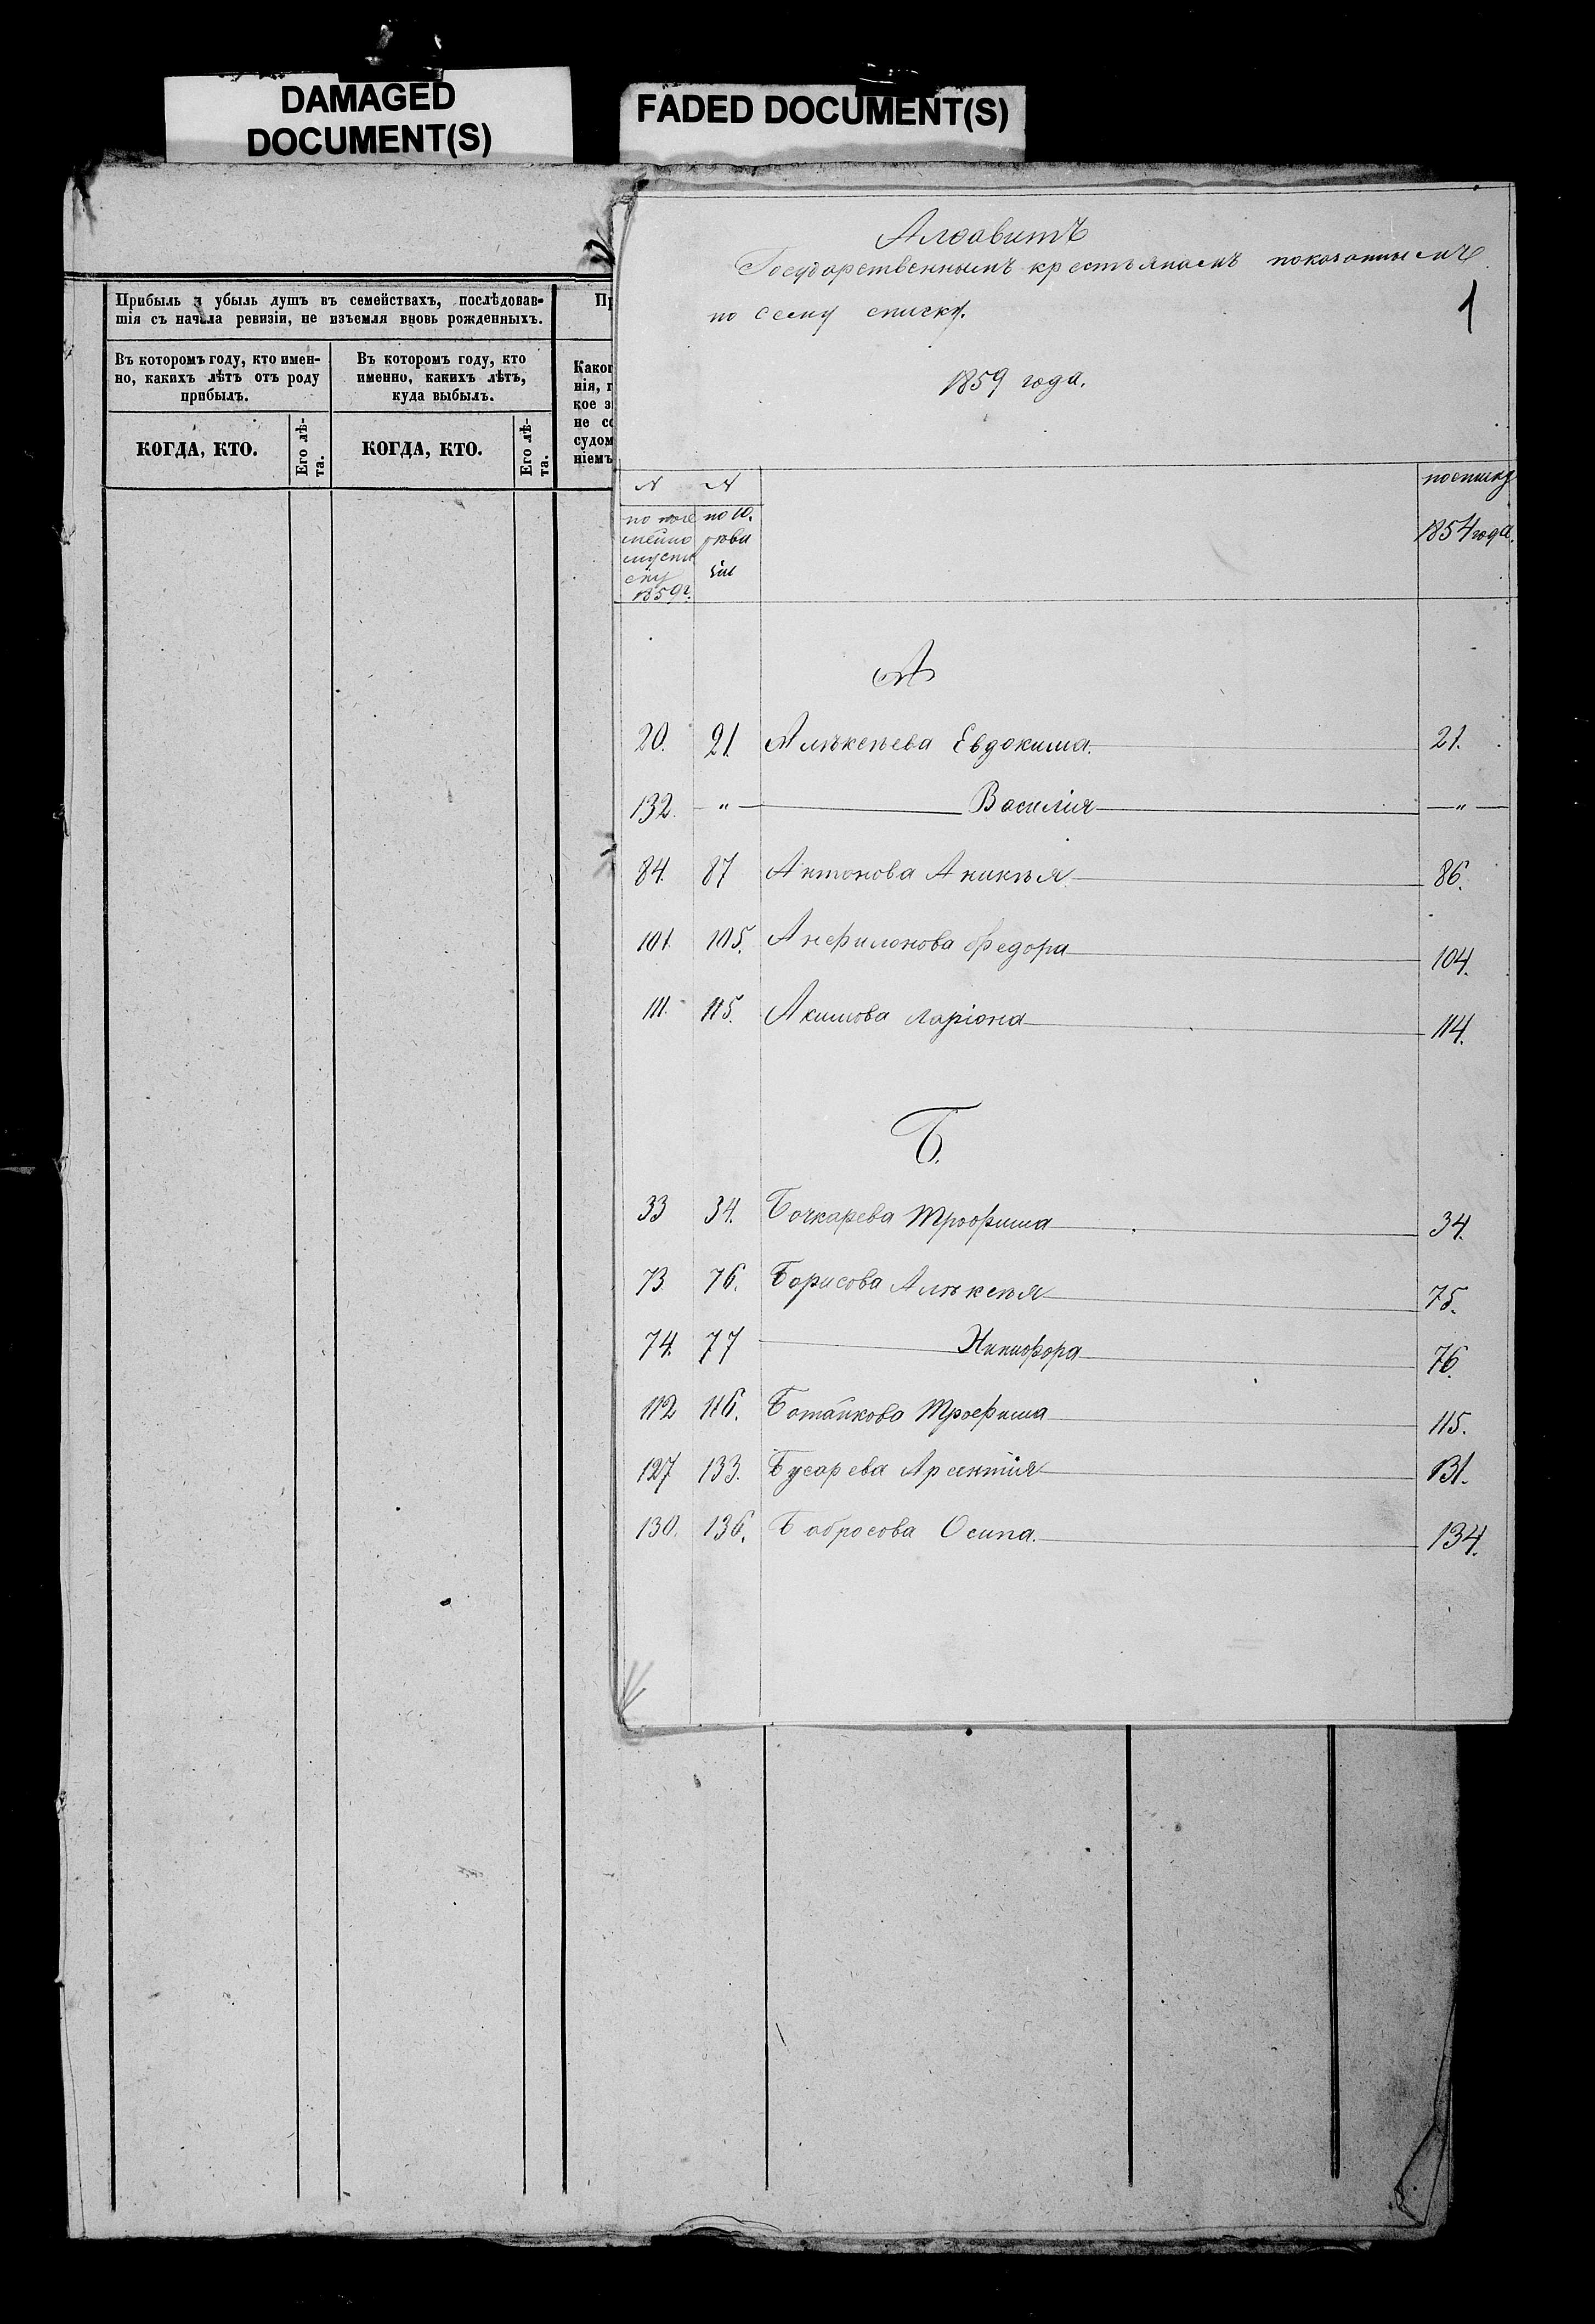 DAMAGED
DOCUMENT(S)
FADED DOCUMENT(S)
Прибыль и убыль душъ въ семействахъ, послѣдовав-
шія съ начала ревизіи, не изъемля вновь рожденныхъ.
Въ которомъ году, кто имен-
но, какихъ лѣтъ отъ роду
прибылъ.
Въ которомъ году, кто
именно, какихъ лѣтъ,
куда выбылъ.
КОГДА, КТО.
Его лѣ-
та.
КОГДА, КТО.
Его лѣ-
та.
Пр
Каког
нія, г
кое з
не со
судом
ніемъ
Алѳавитъ
Государственнымъ крестьянамъ показаннымъ
по сему списку.
1
1859 года.
N N
по посе
мейно
му спи
ску
1859 г.
по 10.
реви
зіи
по списку
1854 года.
А
20. 21. Алѣксѣева Евдокима. 21.
132. " Василія "
84. 87 Антонова Аникѣя 86.
101. 105. Анфилонова Федора 104.
111. 115. Акимова Ларіона 114.
Б.
33 34. Бочкарева Трофима 34.
73 76. Борисова Алѣксѣя 75.
74. 77 Никифора 76.
112 116. Трофима 115.
127 133. Бусарева Арсентія 131.
130. 136. Бабросова Осипа. 134.